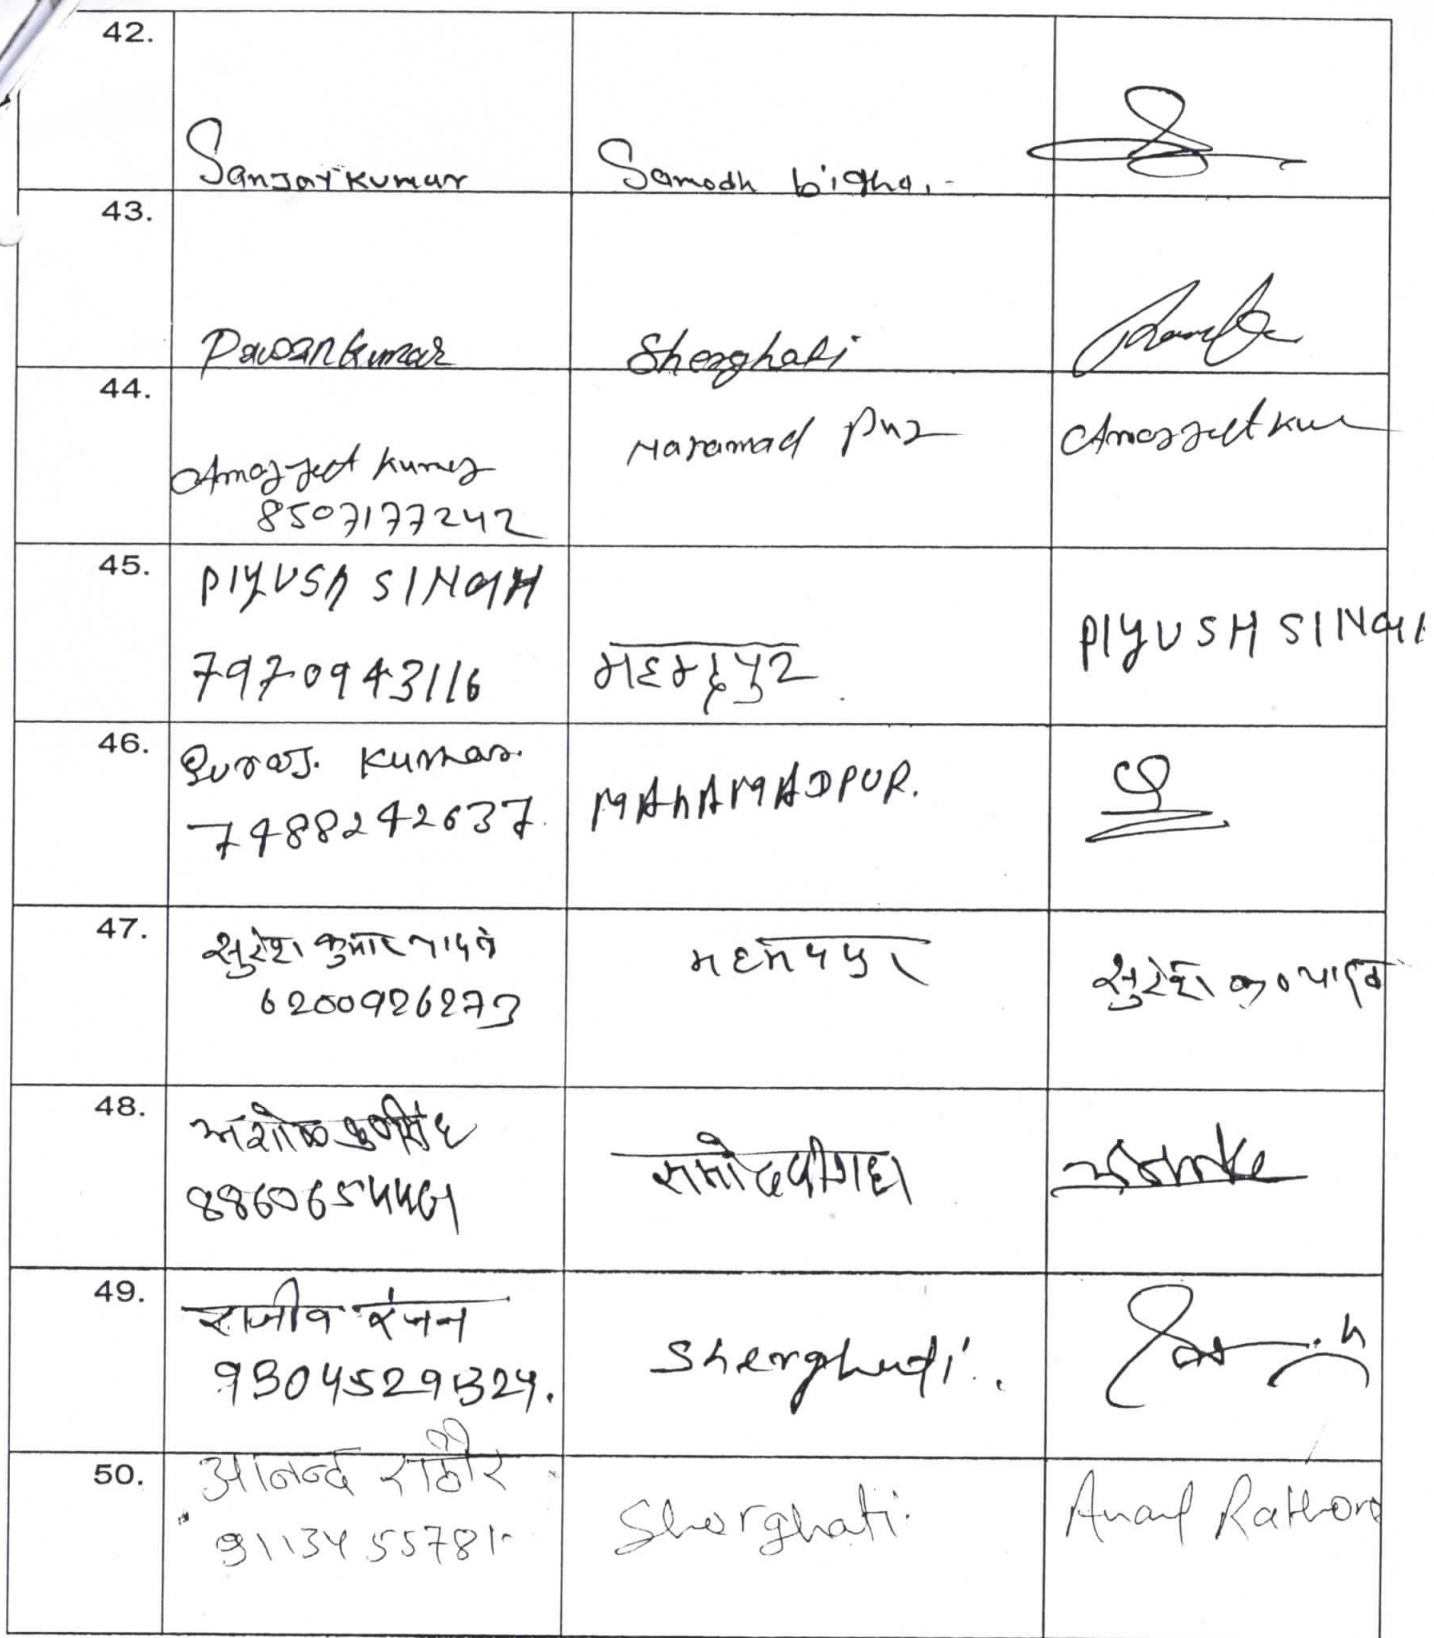 42.
Sanjay Kumar Samodh bigha.
43.
Pawan Kumar Sherghati
44.
Amarjeet Kumar
8507177242
Maramad Pur
Amarjeet Kum
45.
PIYUSh SINGH
7970943116
महमदपुर
PIYUSH SINGH
46.
Suraj. Kumar.
7488242637.
MAhAMADPUR.
47.
सुरेश कुमार यादव
6200926273
महमदपुर
सुरेश कु० यादव
48.
अशोक कु० सिंह
समोदबीगहा
49.
राजीव रंजन
Sherghati.
50.
आनन्द राठौर
9113455781
Sherghati.
Anand Rathore